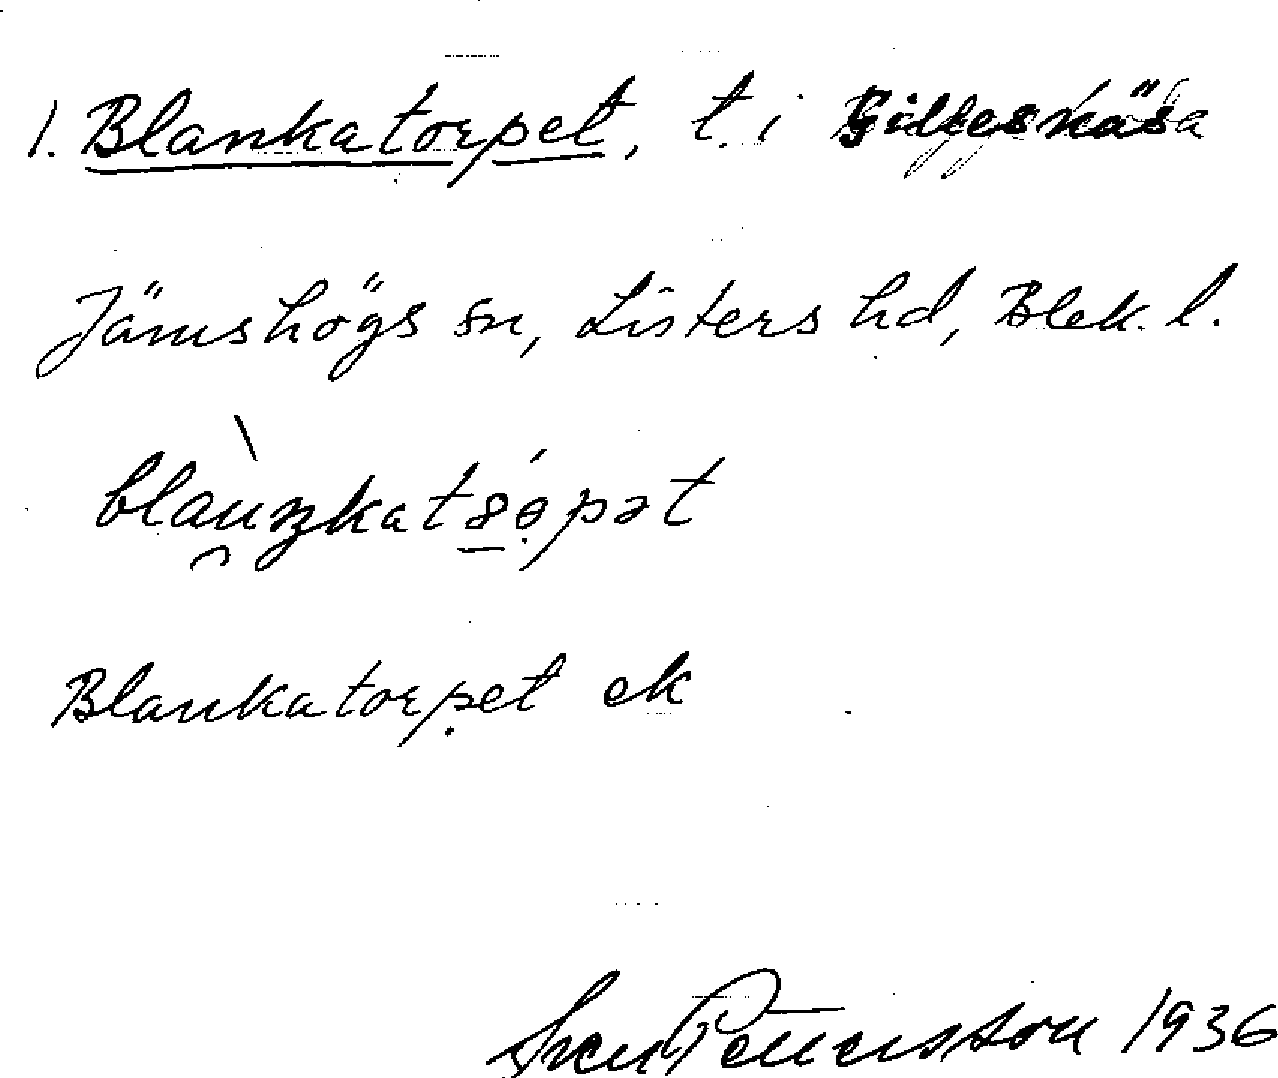 1. Blankatorpet, t. i
Jämshögs sn, Listers hd, Blek. l.
Blankatorpet ek
Sven Pettersson 1936